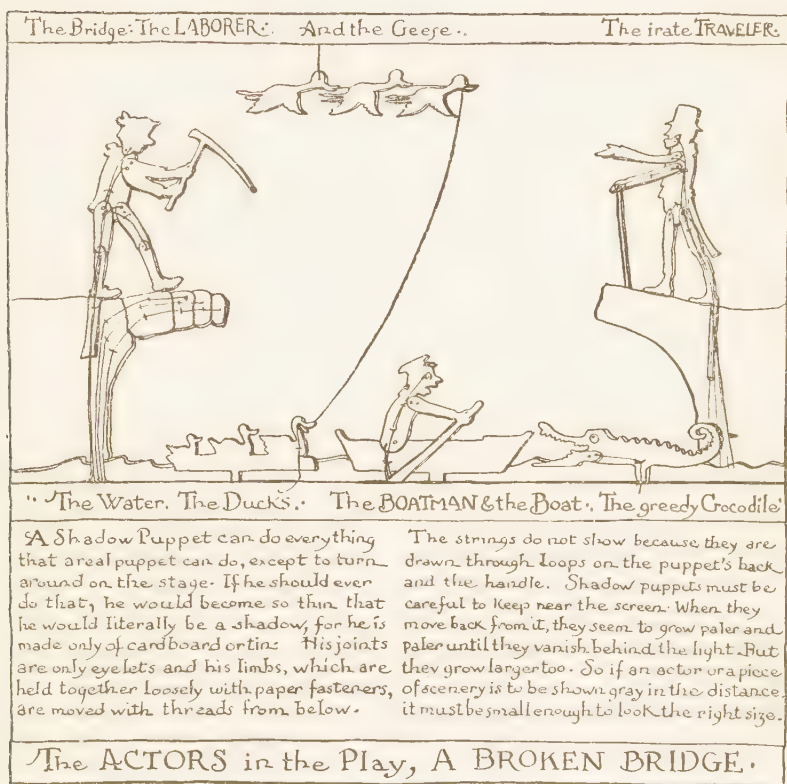 The Bridge: The LABORER:. And the Geese.. The irate TRAVELER:.
" The Water. The Ducks.· The BOATMAN & the Boat·. The greedy Crocodile'
A Shadow Puppet can do everything
that a real puppet can do, except to turn
around on the stage. If he should ever
do that, he would become so thin that
he would literally be a shadow, for he is
made only of cardboard or tin. His joints
are only eyelets and his limbs, which are
held together loosely with paper fasteners,
are moved with threads from below.
The strings do not show because they are
drawn through loops on the puppet's back
and the handle. Shadow puppets must be
careful to keep near the screen. When they
move back from it, they seem to grow paler and
paler until they vanish behind the light. But
they grow larger too. So if an actor or a piece
of scenery is to be shown gray in the distance,
it must be small enough to look the right size.
The ACTORS in the Play, A BROKEN BRIDGE.